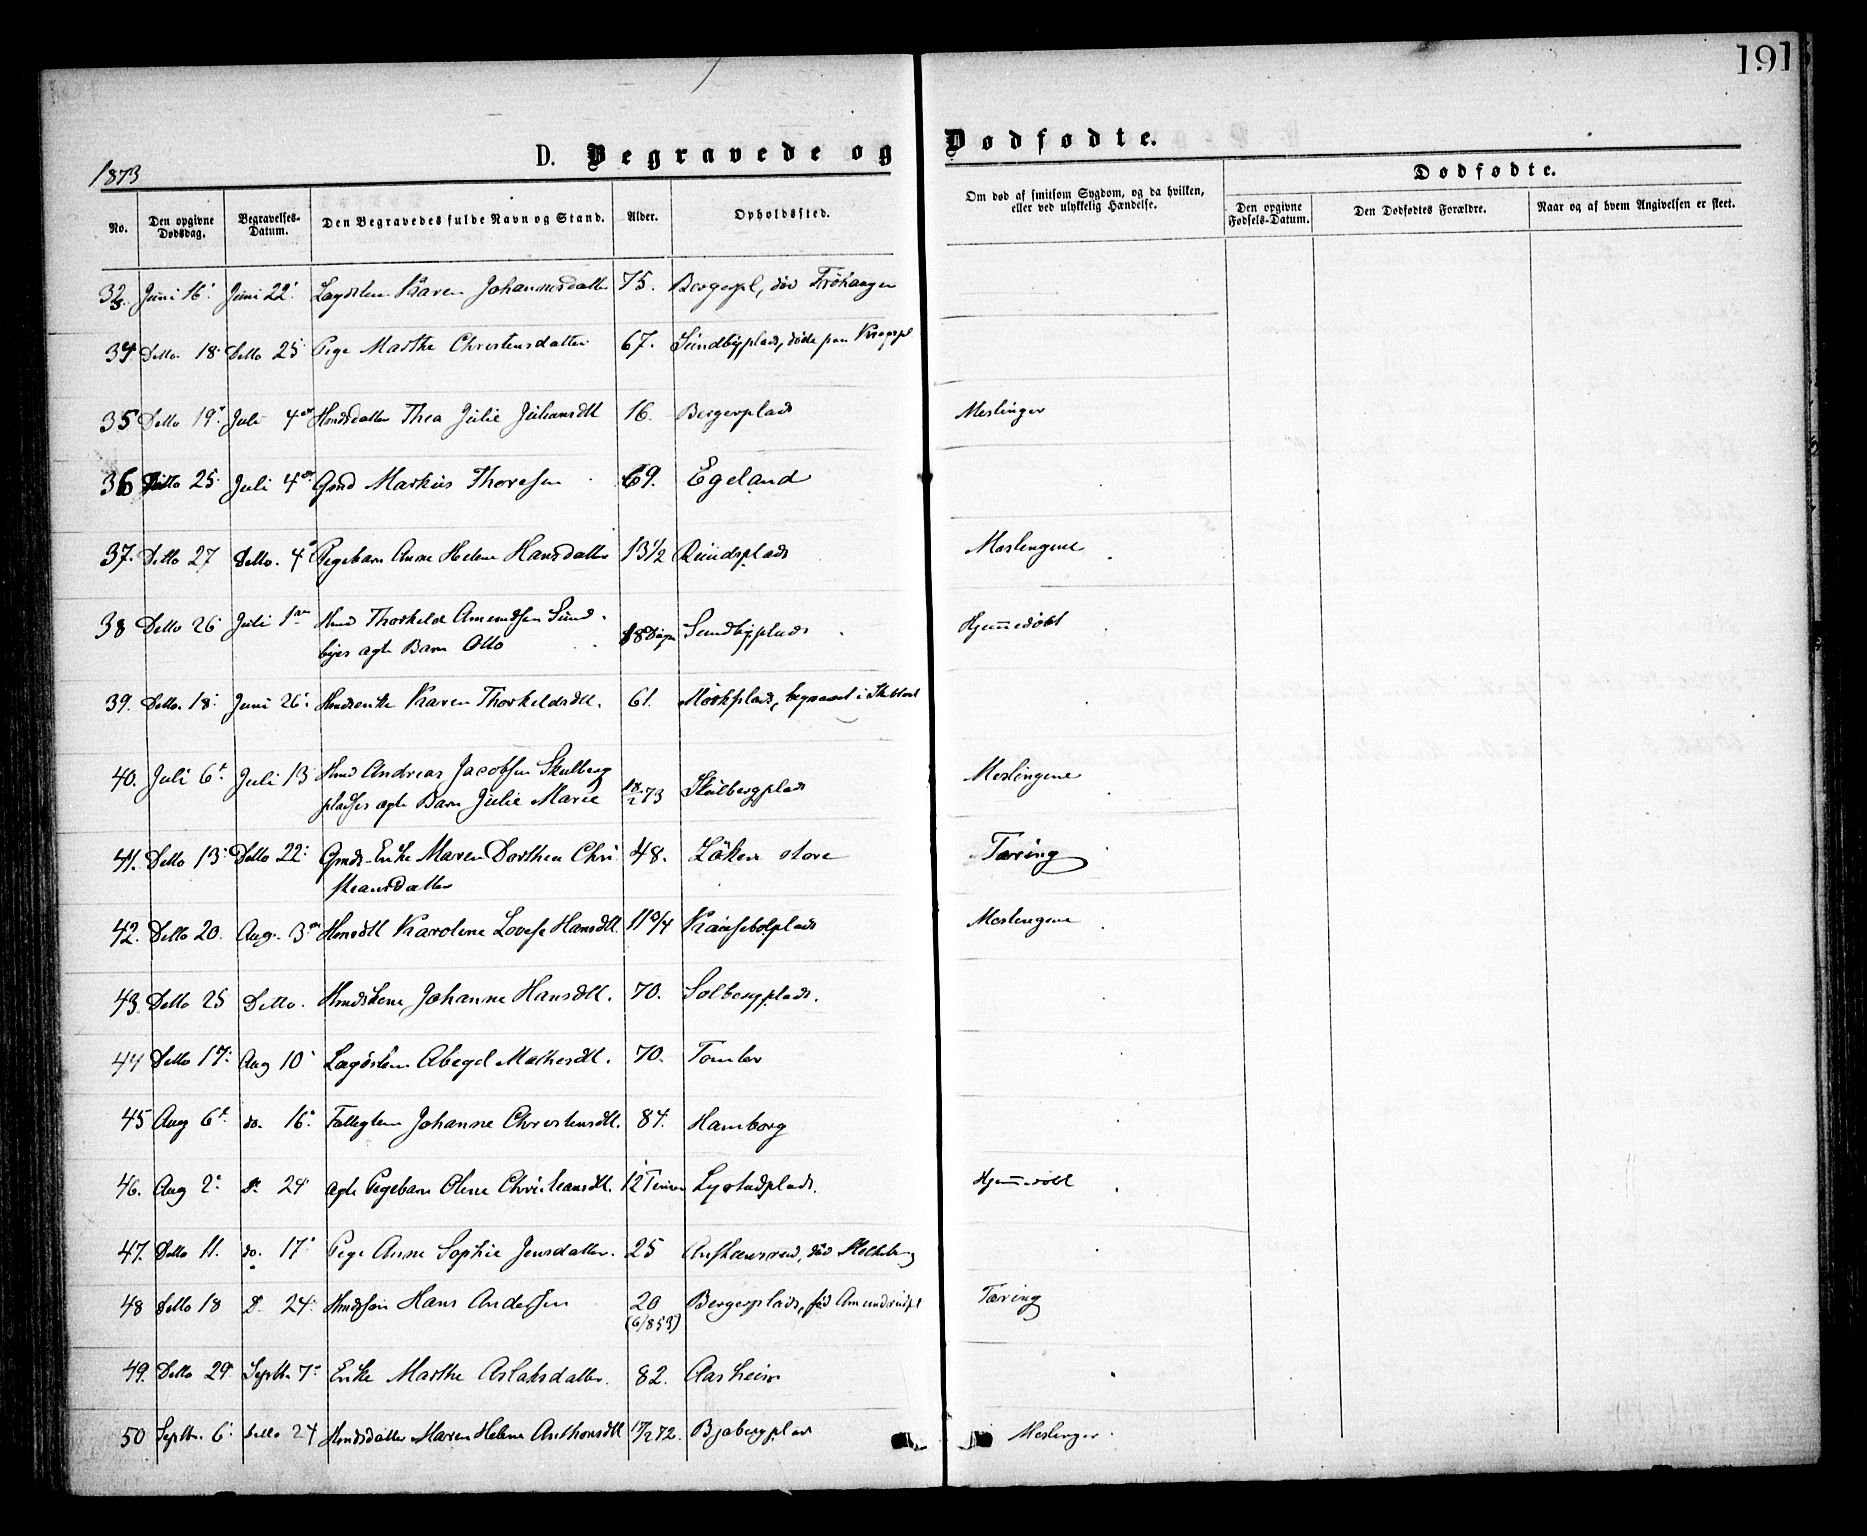 191
1873
D. Begravede og Dødfødte.
No. Den opgivne Dødsdag. Begravelses-Datum. Den Begravedes fulde Navn og Stand. Alder. Opholdssted. Om død af smitsom Sygdom, og da hvilken, eller ved ulykkelig Hændelse. Dødfødte.
Den opgivne Fødsels-Datum. Den Dødfødtes Forældre. Naar og af hvem Angivelsen er skeet.
Juni 16. Juni 22. Karen Johannesdatter 75. Bergerpl, død
34. Detto 18. Detto 25 Pige Marthe Christensdatter 67. Sundbyplads, døde paa
35 Detto 19. Juli 4de Hmdsdatter Thea Julie Juliansdtt 16. Bergerplads Meslinger
36 Ditto 25. Juli 4de Gmd Markus Thoresen 69. Egeland
37. Detto 27 Detto. 4 Pigebarn Anne Helene Hansdatter 13 1/2 Rundsplads Meslingene
38 Detto 26 Juli 1 Hmd Thorkeld Amundsen Sund-
byes ægte Barn Otto 18 Dage Sundbyplads Hjemmedøbt
39. Detto. 18. Juni 26. Hmdsenke Karen Thorkeldsdtt. 61. Mørkplads, begravet i
40. Juli 6t. Juli 13 Hmd Andreas Jacobsen Skulberg
pladses ægte Barn Julie Marie Skulbergplads Meslingene
41. Detto 13. Detto 22. Gmds-Enke Maren Dorthea Chri
steansdatter 48. Løken store Tæring
42. Detto 20. Aug. 3 Hmsdtt Karoline Lovise Hansdtt. 11 3/4 Meslingene
43 Detto 25 Detto. Johanne Hansdtt. 70. Solbergplads.
44 Detto 17. Aug 10 Abegel 70. Tomter
45 Aug 6t. do. 16. Johanne Christensdtt. 84. Hamborg
46. Aug 2. D. 24 ægte Pigebarn Oline Christiansdtt. 12 Timer Lystadplads. Hjemmedøbt
47. Detto 11. do. 17 Pige Anne Sophie Jensdatter. 25
48 Detto 18 D. 24. Hmdssøn Hans Andersen 20
(6/853) Bergerplads, Tæring
49. Detto 29 Septbr. 7. Enke Marthe Aslaksdatter. 82. Aasheim
50 Septbr. 6. Detto 24 Hmdsdatter Maren Helene Anthonsdtt 17/2 72. Bjabergplads Meslinger